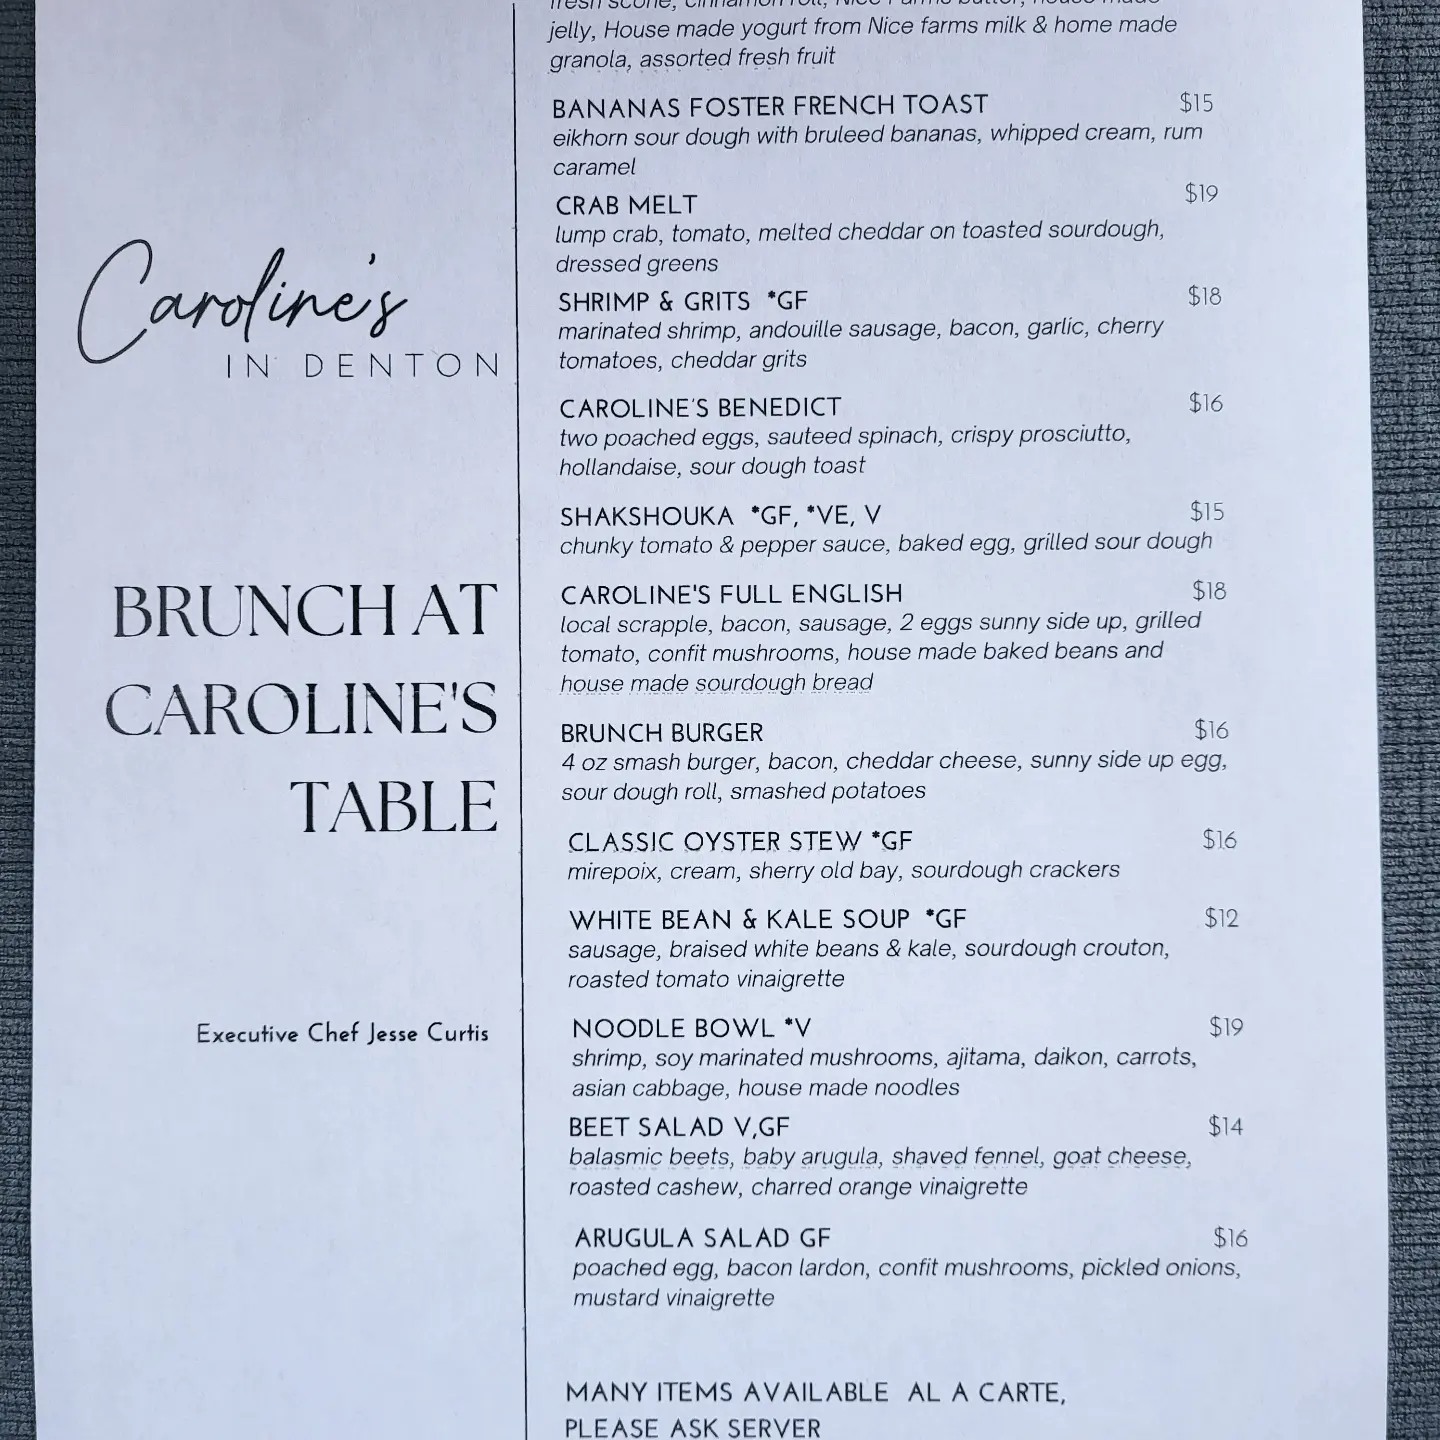 Caroline's
IN DENTON
BRUNCH AT
CAROLINE'S
TABLE
Executive Chef Jesse Curtis
fresh scone, cinnamon roll, Nice Farms butter, house made
jelly, House made yogurt from Nice farms milk & home made
granola, assorted fresh fruit
BANANAS FOSTER FRENCH TOAST $15
eikhorn sour dough with bruleed bananas, whipped cream, rum
caramel
CRAB MELT $19
lump crab, tomato, melted cheddar on toasted sourdough,
dressed greens
SHRIMP & GRITS *GF $18
marinated shrimp, andouille sausage, bacon, garlic, cherry
tomatoes, cheddar grits
CAROLINE'S BENEDICT $16
two poached eggs, sauteed spinach, crispy prosciutto,
hollandaise, sour dough toast
SHAKSHOUKA *GF, *VE, V $15
chunky tomato & pepper sauce, baked egg, grilled sour dough
CAROLINE'S FULL ENGLISH $18
local scrapple, bacon, sausage, 2 eggs sunny side up, grilled
tomato, confit mushrooms, house made baked beans and
house made sourdough bread
BRUNCH BURGER $16
4 oz smash burger, bacon, cheddar cheese, sunny side up egg,
sour dough roll, smashed potatoes
CLASSIC OYSTER STEW *GF $16
mirepoix, cream, sherry old bay, sourdough crackers
WHITE BEAN & KALE SOUP *GF $12
sausage, braised white beans & kale, sourdough crouton,
roasted tomato vinaigrette
NOODLE BOWL *V $19
shrimp, soy marinated mushrooms, ajitama, daikon, carrots,
asian cabbage, house made noodles
BEET SALAD V,GF $14
balasmic beets, baby arugula, shaved fennel, goat cheese,
roasted cashew, charred orange vinaigrette
ARUGULA SALAD GF $16
poached egg, bacon lardon, confit mushrooms, pickled onions,
mustard vinaigrette
MANY ITEMS AVAILABLE AL A CARTE,
PLEASE ASK SERVER